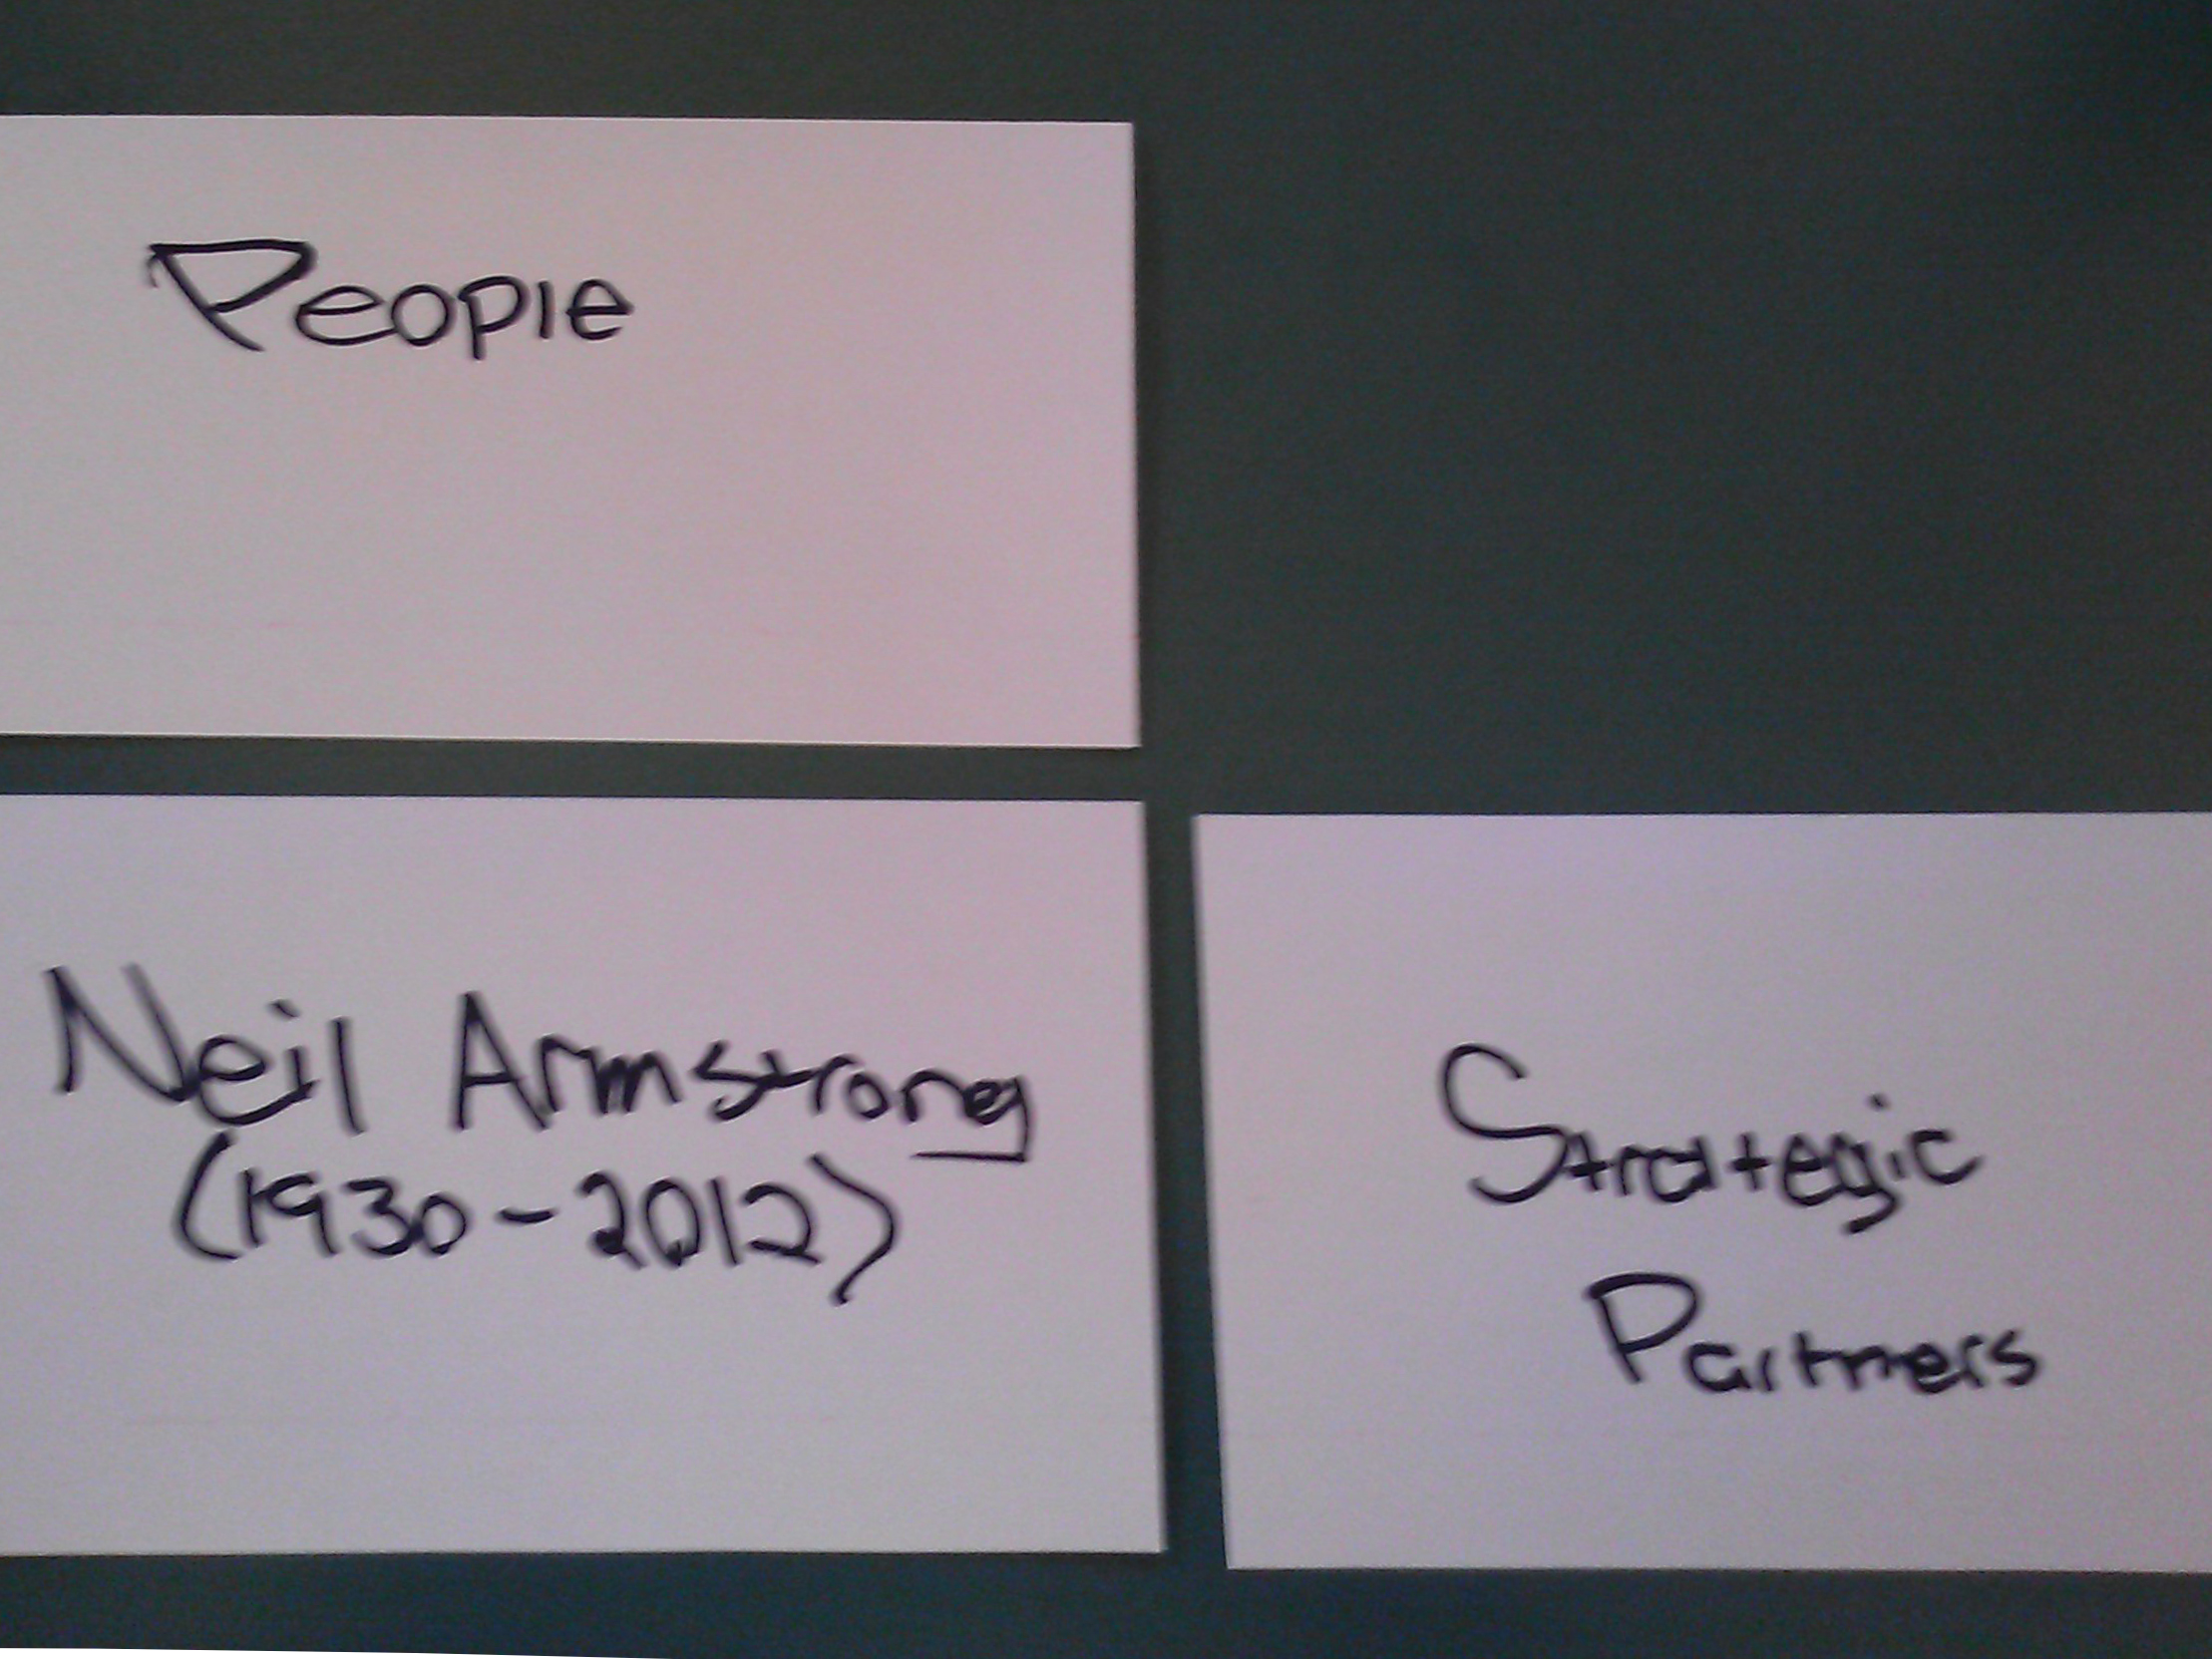 People
Neil Armstrong
(1930-2012)
Strategic
Partners